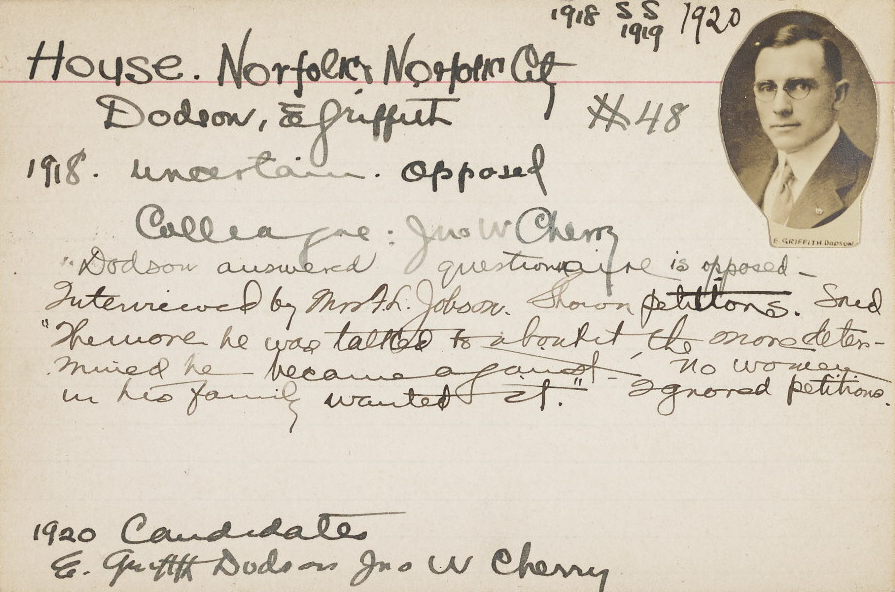 1918 SS 1920
1919
House. Norfolk Norfolk City
Dodson, E Griffith #48
1918. uncertain. opposed
Colleague: Jno W Cherry
E. GRIFFITH DODSON
"Dodson answered questionnaire is opposed –
Interviewed by Mrs F. L. Jobson. Shown petitions. Said
"The more he was talked to about it, the more deter-
mined he became against – no women
in his family wanted it." Ignored petitions.
1920 Candidates
E. Griffith Dodson Jno W Cherry